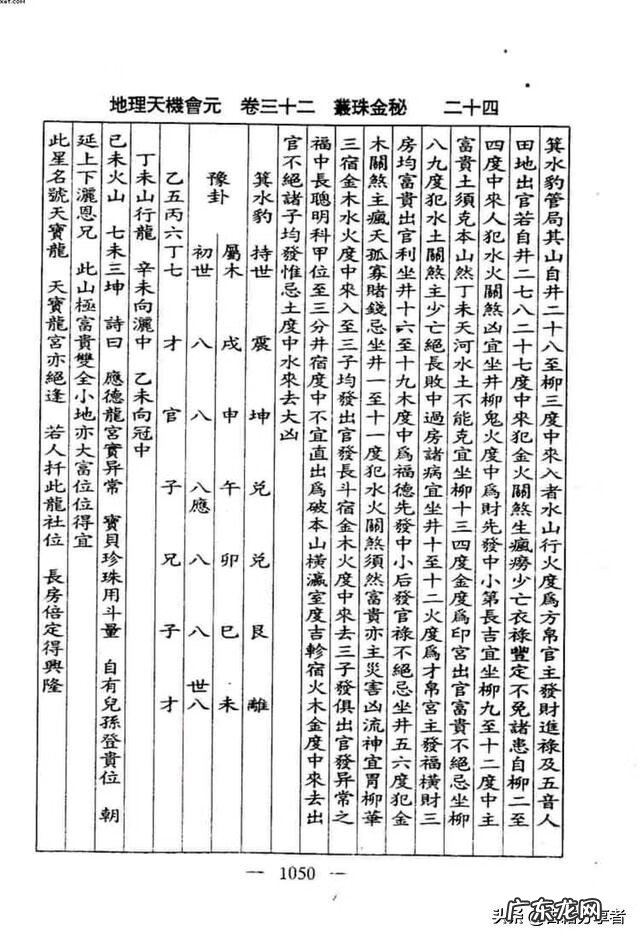 地理天機會元　卷三十二　叢珠金秘　二十四
箕水豹管局其山自井二十八至柳三度中來入者水山行火度為方帛官主發財進祿及五音人
田地出官若自井二七八二十七度中來犯金火關煞生瘋癆少亡衣祿豐定不免諸患自柳二至
四度中來人犯水火關煞凶宜坐井柳鬼火度中為財先發中小第長吉宜坐柳九至十二度中主
富貴土須克本山然丁未天河水土不能克宜坐柳十三四度金度為印宮出官富貴不絕忌坐柳
八九度犯水土關煞主少亡絕長敗中過房諸病宜坐井十至十二火度為才帛宮主發福橫財三
房均富貴出官利坐井十六至十九木度中為福德先發中小后發官祿不絕忌坐井五六度犯金
木關煞主瘋天孤寡賭錢忌坐井一至十一度犯水火關煞須然富貴亦主災害凶流神宜胃柳華
三宿金木水火度中來入至三子均發出官發長斗宿金木火度中來去三子發俱出官發異常之
福中長聰明科甲位至三分井宿度中不宜直出為破本山橫瀛室度吉軫宿火木金度中來去出
官不絕諸子均發惟忌土度中水來去大凶
箕水豹　持世　震　坤　兌　兌　艮　離
豫卦　屬木　戌　申　午　卯　巳　未
初世　八　八　八應　八　八　世八
乙五丙六丁七　才　官　子　兄　子　才
丁未山行龍　辛未向灑中　乙未向冠中
己未火山　七未三坤　詩曰　應德龍宮實異常　寶貝珍珠用斗量　自有兒孫登貴位　朝
延上下灑恩兄　此山極富貴雙全小地亦大富位位得宜
此星名號天寶龍　天寶龍宮亦絕逢　若人扦此龍社位　長房倍定得興隆
— 1050 —
广东龙网
头条
享者